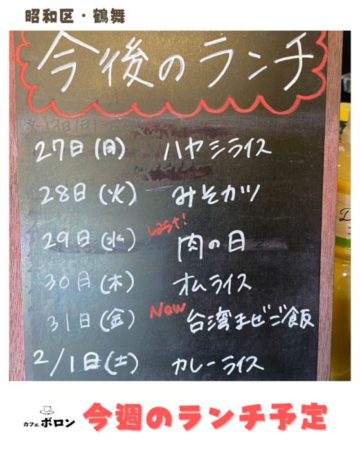 昭和区・鶴舞
今後のランチ
27日(月) ハヤシライス
28日(火) みそカツ
Last!
29日(水) 肉の日
30日(木) オムライス
New
31日(金) 台湾まぜご飯
2/1日(土) カレーライス
カフェ ボロン
今週のランチ予定